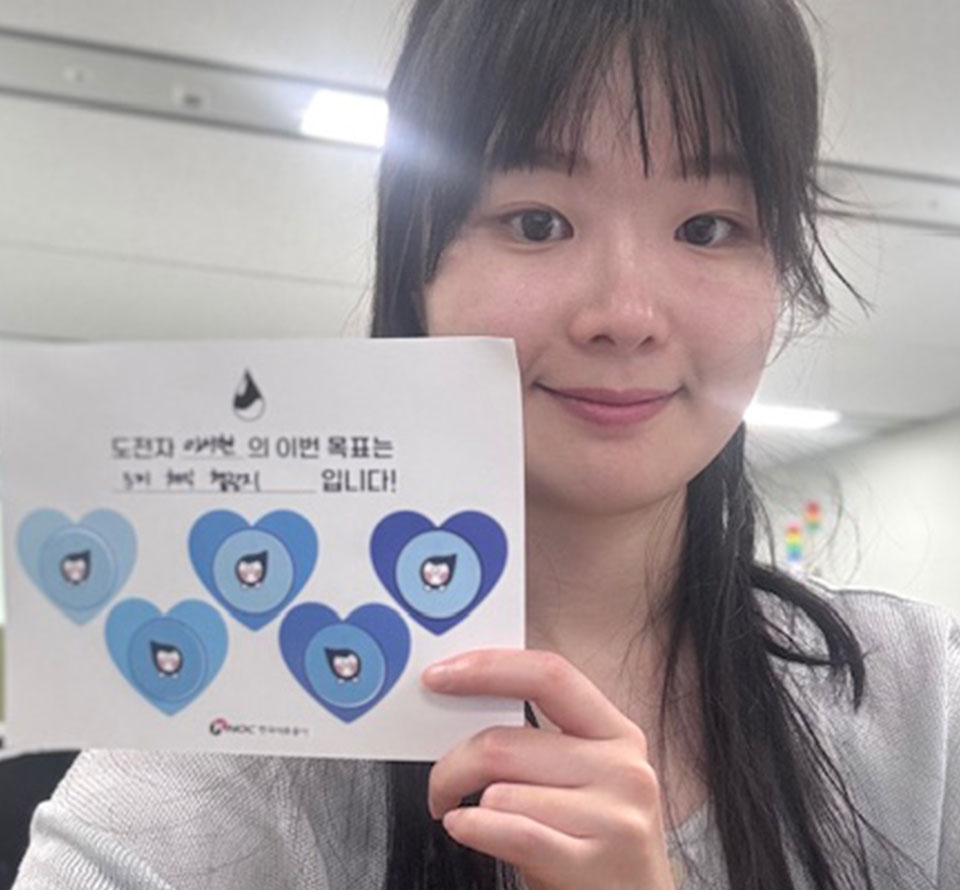 도전자 이서현 의 이번 목표는
챌린지 입니다!
KNOC 한국석유공사